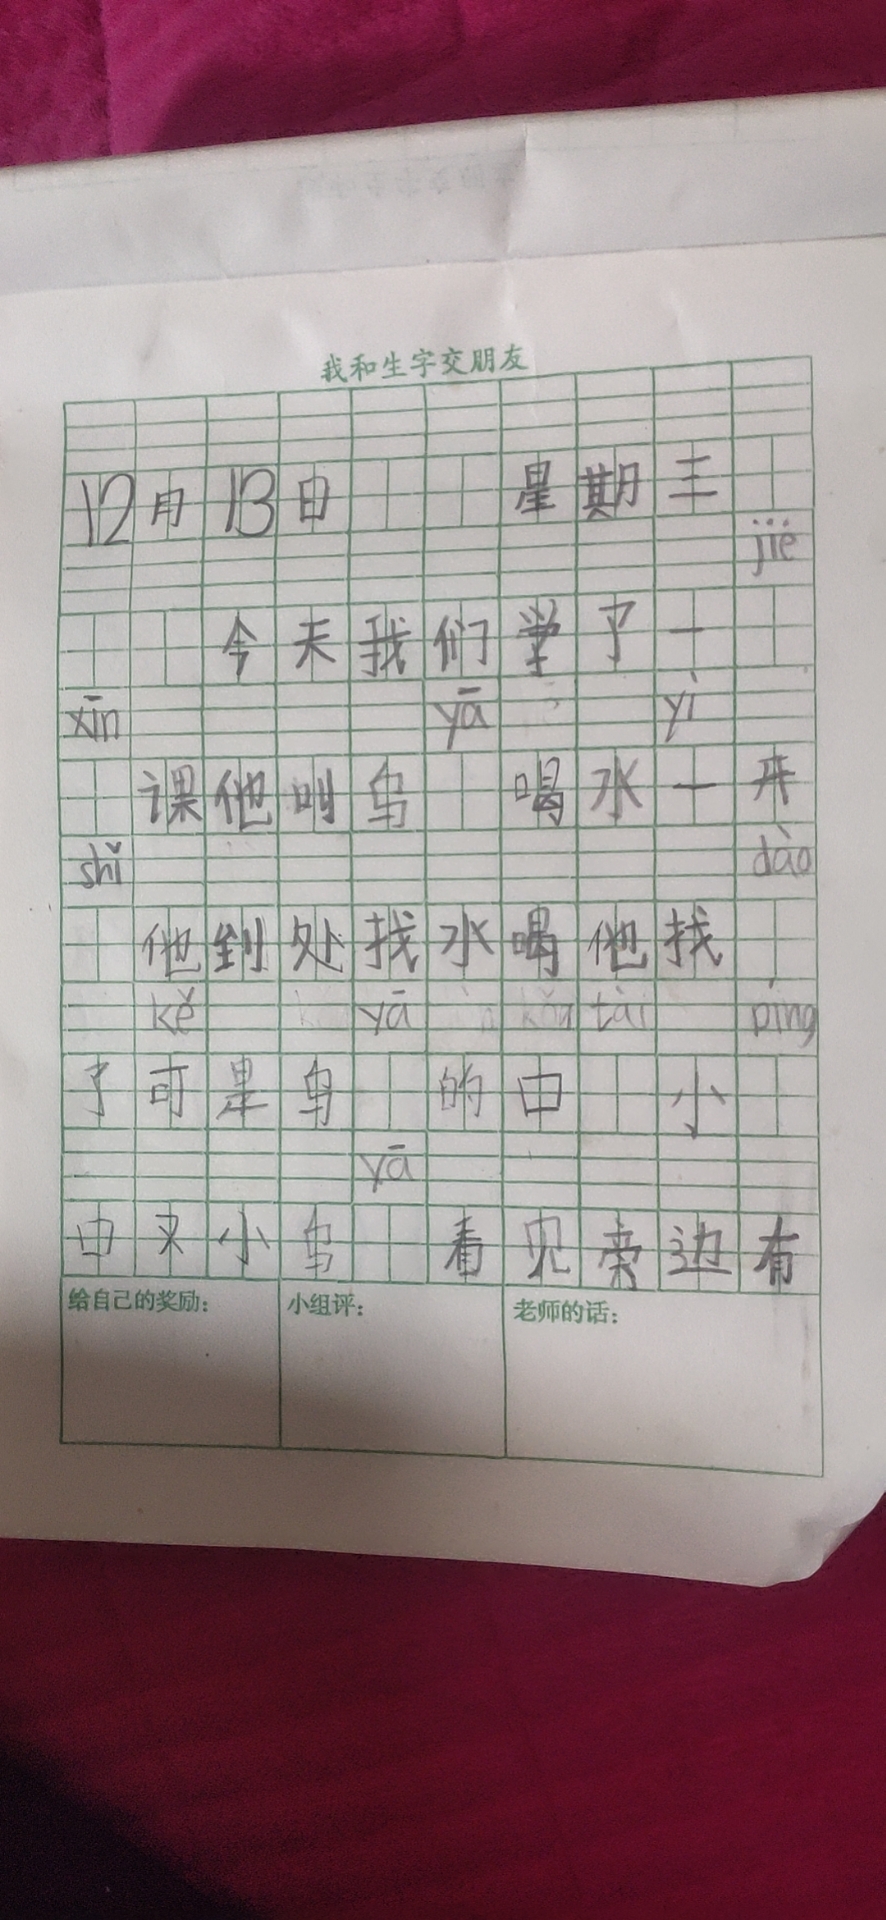 我和生字交朋友
12月13日 星期三
jiē
今天我们学了一
xīn yā yì
课他叫乌 喝水一开
shǐ dào
他到处找水喝他找
kě yā tài píng
了可是乌 的口 小
yā
口又小乌 看见旁边有
给自己的奖励： 小组评： 老师的话：